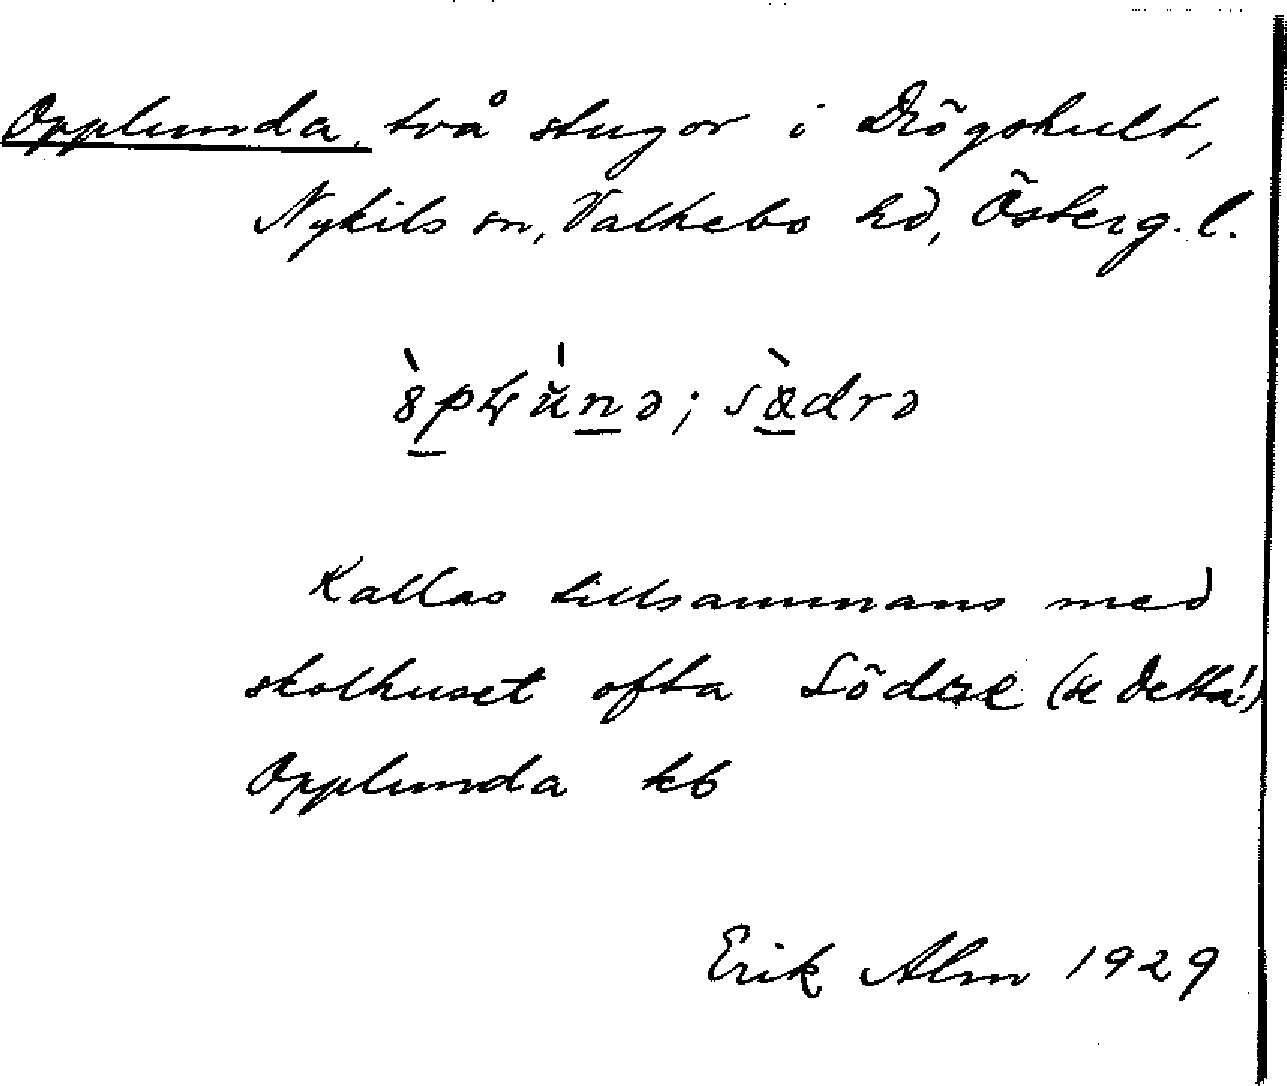 Opplunda, två stugor i Drögshult,
Nykils sn, Valkebo hd, Österg. l.
Kallas tillsammans med
skolhuset ofta Södre (se detta!)
Opplunda kb
Erik Alm 1929